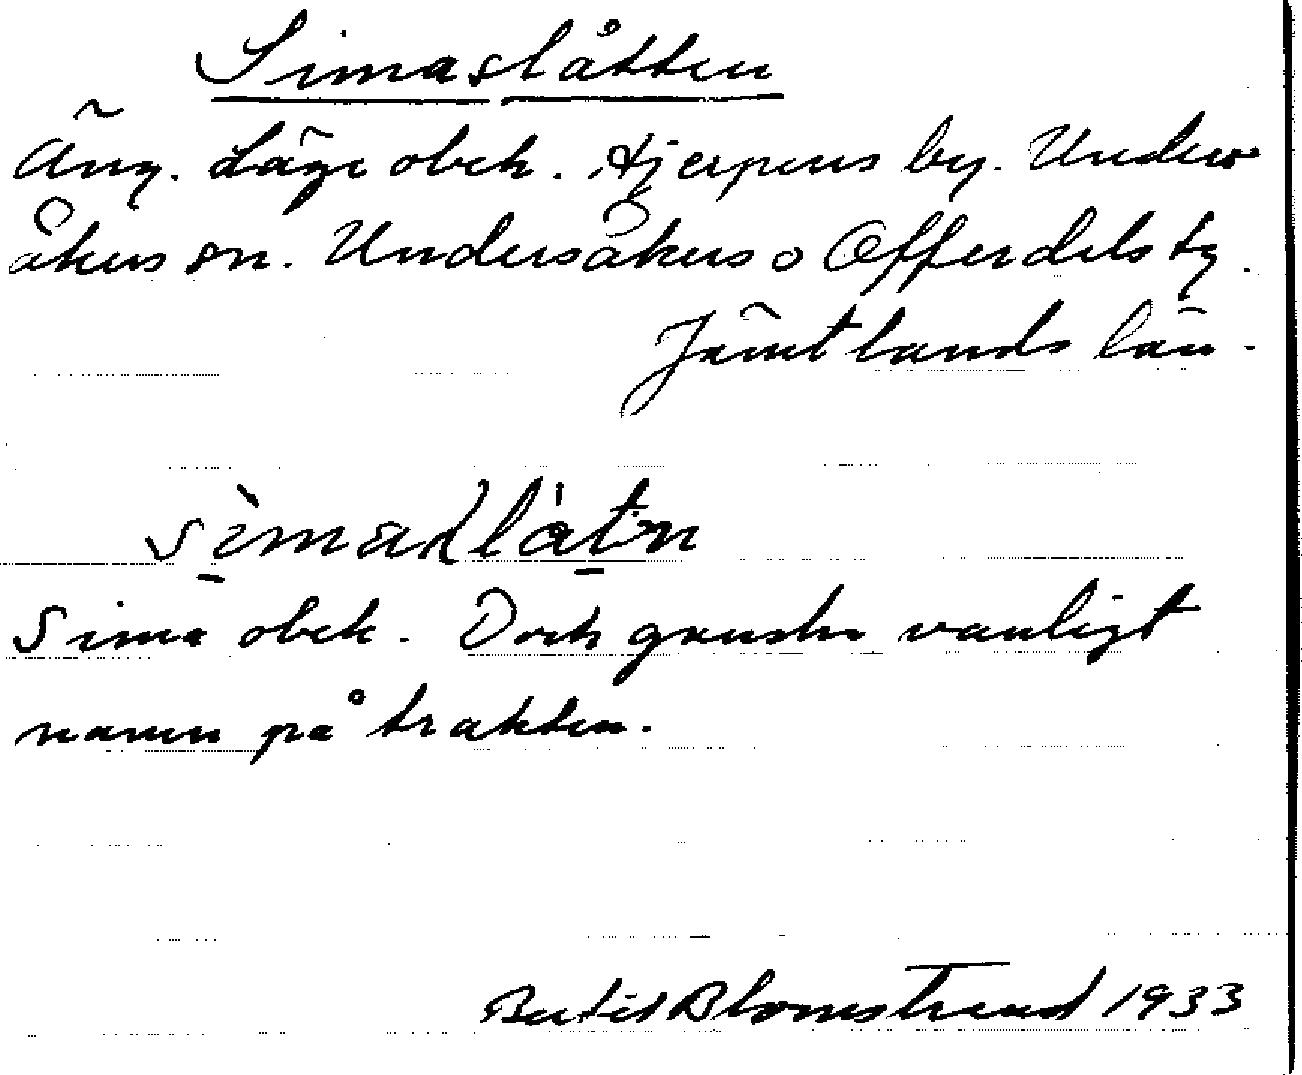 Simaslåtten
Äng. Läge obek. Hjerpens by. Unders-
åkers sn. Undersåkers o Offerdals tg.
Jämtlands län.
Sima obek. Dock ganska vanligt
namn på trakten.
Bertil Blomstrand 1933